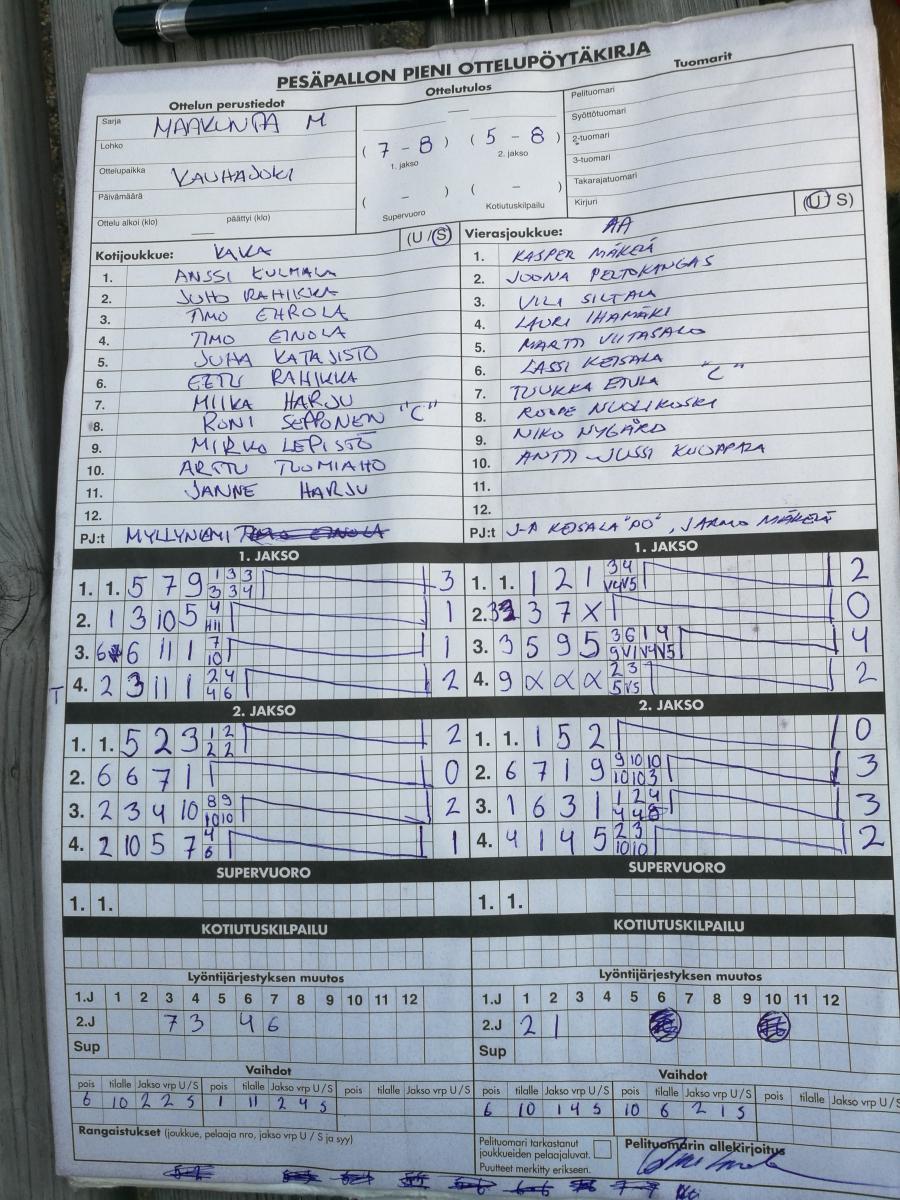 PESÄPALLON PIENI OTTELUPÖYTÄKIRJA
Ottelun perustiedot
Sarja MAAKUNTA M
Lohko
Ottelupaikka KAUHAJOKI
Päivämäärä
Ottelu alkoi (klo) päättyi (klo)
Ottelutulos
( 7 - 8 ) ( 5 - 8 )
1. jakso 2. jakso
( - ) ( - )
Supervuoro Kotiutuskilpailu
Tuomarit
Pelituomari
Syöttötuomari
2-tuomari
3-tuomari
Takarajatuomari
Kirjuri
Kotijoukkue: KAKA (U / S)
1. ANSSI KULMALA
2. JUHO RAHIKKA
3. TIMO EHROLA
4. TIMO EINOLA
5. JUHA KATAJISTO
6. EETU RAHIKKA
7. MIIKA HARJU
8. RONI SEPPONEN "C"
9. MIRKO LEPISTÖ
10. ARTTU TUOMIAHO
11. JANNE HARJU
12.
PJ:t MYLLYNIEMI
Vierasjoukkue: AA (U / S)
1. KASPER MÄKELÄ
2. JOONA PELTOKANGAS
3. VILI SILTALA
4. LAURI IHAMÄKI
5. MARTTI VIITASALO
6. LASSI KEISALA
7. TUUKKA ETULA "C"
8. ROOPE NUOLIKOSKI
9. NIKO NYGÅRD
10. ANTTI-JUSSI
11.
12.
PJ:t J-P KEISALA "PO", JARMO MÄKELÄ
1. JAKSO
1. 1. 5 7 9 1 3 3 3
3 3 4
2. 1 3 10 5 4 1
11
3. 6 6 11 1 7 1
10
T 4. 2 3 11 1 2 4 2
4 6
1. JAKSO
1. 1. 1 2 1 3 4 2
V4 V5
2. 3 3 7 X 0
3. 3 5 9 5 3 6 1 4 4
9 V1 V4 V5
4. 9 α α α 2 3 2
5 V5
2. JAKSO
1. 1. 5 2 3 1 2 2
2 2
2. 6 6 7 1 0
3. 2 3 4 10 8 9 2
10 10
4. 2 10 5 7 4 1
6
2. JAKSO
1. 1. 1 5 2 0
2. 6 7 1 9 9 10 10 3
10 10 3
3. 1 6 3 1 1 2 4 3
4 4 8
4. 4 1 4 5 2 3 2
10 10
SUPERVUORO
1. 1.
SUPERVUORO
1. 1.
KOTIUTUSKILPAILU
KOTIUTUSKILPAILU
Lyöntijärjestyksen muutos
1.J 1 2 3 4 5 6 7 8 9 10 11 12
2.J 7 3 4 6
Sup
Lyöntijärjestyksen muutos
1.J 1 2 3 4 5 6 7 8 9 10 11 12
2.J 2 1
Sup
Vaihdot
pois tilalle Jakso vrp U / S pois tilalle Jakso vrp U / S pois tilalle Jakso vrp U / S
6 10 2 2 S 1 11 2 4 S
Vaihdot
pois tilalle Jakso vrp U / S pois tilalle Jakso vrp U / S pois tilalle Jakso vrp U / S
6 10 1 4 S 10 6 2 1 S
Rangaistukset (joukkue, pelaaja nro, jakso vrp U / S ja syy)
Pelituomari tarkastanut
joukkueiden pelaajaluvat.
Puutteet merkitty erikseen.
Pelituomarin allekirjoitus